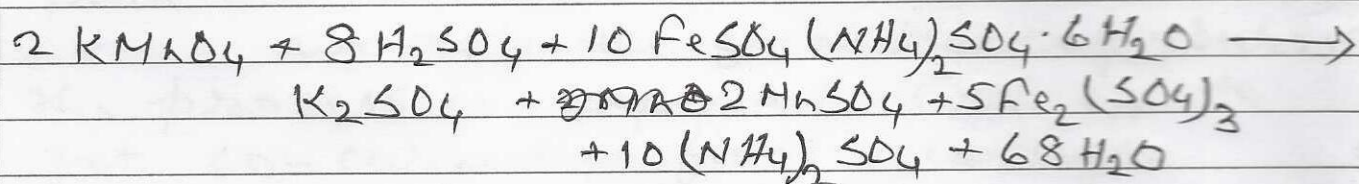 2 KMnO4 + 8 H2SO4 + 10 FeSO4 (NH4)2SO4·6H2O ⟶
K2SO4 + 2 MnSO4 + 5Fe2(SO4)3
+ 10 (NH4)2 SO4 + 68 H2O